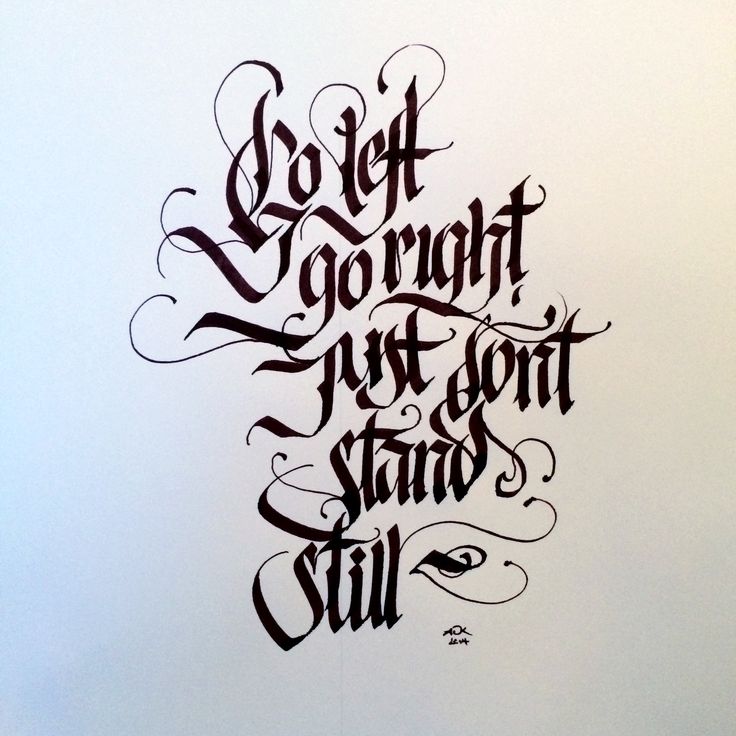 Go left
go right
Just don't
stand
still